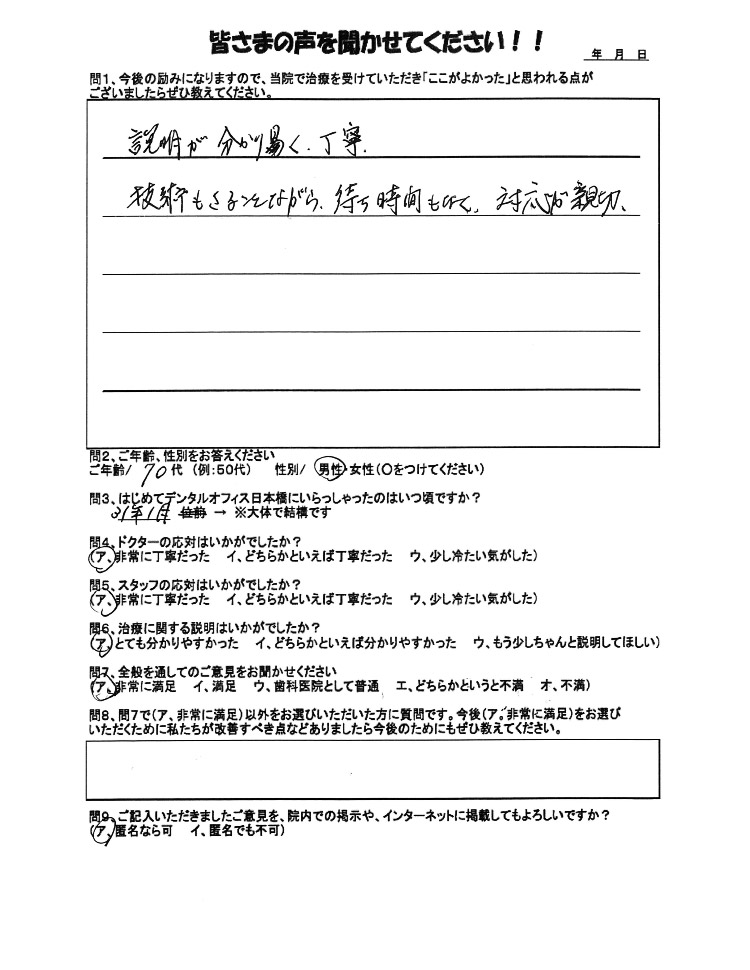 皆さまの声を聞かせてください！！
年　月　日
問1、今後の励みになりますので、当院で治療を受けていただき「ここがよかった」と思われる点が
ございましたらぜひ教えてください。
説明が分かり易く、丁寧。
技術もさることながら、待ち時間もなく、対応が親切、
問2、ご年齢、性別をお答えください
ご年齢/ 70代（例：50代）　性別/ 男性・女性（○をつけてください）
問3、はじめてデンタルオフィス日本橋にいらっしゃったのはいつ頃ですか？
31年1月 位前 → ※大体で結構です
問4、ドクターの応対はいかがでしたか？
（ア、非常に丁寧だった　イ、どちらかといえば丁寧だった　ウ、少し冷たい気がした）
問5、スタッフの応対はいかがでしたか？
（ア、非常に丁寧だった　イ、どちらかといえば丁寧だった　ウ、少し冷たい気がした）
問6、治療に関する説明はいかがでしたか？
（ア、とても分かりやすかった　イ、どちらかといえば分かりやすかった　ウ、もう少しちゃんと説明してほしい）
問7、全般を通してのご意見をお聞かせください
（ア、非常に満足　イ、満足　ウ、歯科医院として普通　エ、どちらかというと不満　オ、不満）
問8、問7で（ア、非常に満足）以外をお選びいただいた方に質問です。今後（ア。非常に満足）をお選び
いただくために私たちが改善すべき点などありましたら今後のためにもぜひ教えてください。
問9、ご記入いただきましたご意見を、院内での掲示や、インターネットに掲載してもよろしいですか？
（ア、匿名なら可　イ、匿名でも不可）